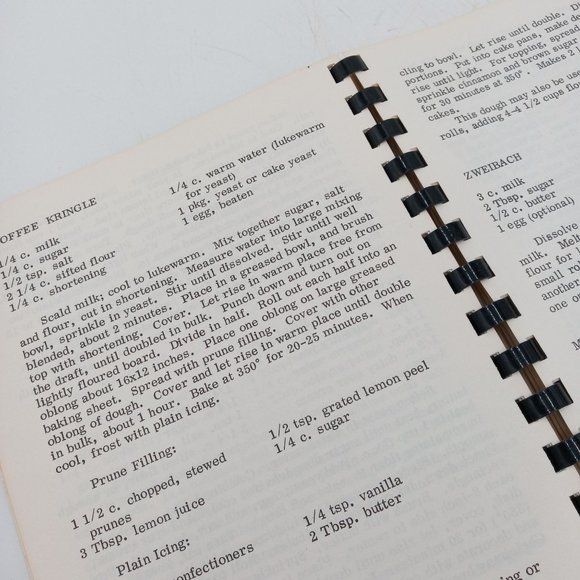 OFFEE KRINGLE
1/4 c. milk
1/4 c. sugar
1/2 tsp. salt
2 1/4 c. sifted flour
1/4 c. shortening
1/4 c. warm water (lukewarm
for yeast)
1 pkg. yeast or cake yeast
1 egg, beaten
Scald milk; cool to lukewarm. Mix together sugar, salt
and flour, cut in shortening. Measure water into large mixing
bowl, sprinkle in yeast. Stir until dissolved. Stir until well
blended, about 2 minutes. Place in a greased bowl, and brush
top with shortening. Cover. Let rise in warm place free from
the draft, until doubled in bulk. Punch down and turn out on
lightly floured board. Divide in half. Roll out each half into an
oblong about 16x12 inches. Place one oblong on large greased
baking sheet. Spread with prune filling. Cover with other
oblong of dough. Cover and let rise in warm place until double
in bulk, about 1 hour. Bake at 350° for 20-25 minutes. When
cool, frost with plain icing.
Prune Filling:
1 1/2 c. chopped, stewed
prunes
3 Tbsp. lemon juice
1/2 tsp. grated lemon peel
1/4 c. sugar
Plain Icing:
onfectioners
1/4 tsp. vanilla
2 Tbsp. butter
cling to bowl. Let rise until double. D
portions. Put into cake pans, make de
rise until light. For topping, spread
sprinkle cinnamon and brown sugar
for 30 minutes at 350°. Makes 2
cakes.
This dough may also be use
rolls, adding 4-4 1/2 cups flo
ZWEIBACH
3 c. milk
2 Tbsp. sugar
1/2 c. butter
1 egg (optional)
Dissolve
milk. Me
flour for
small r
anothe
one
M
ng or